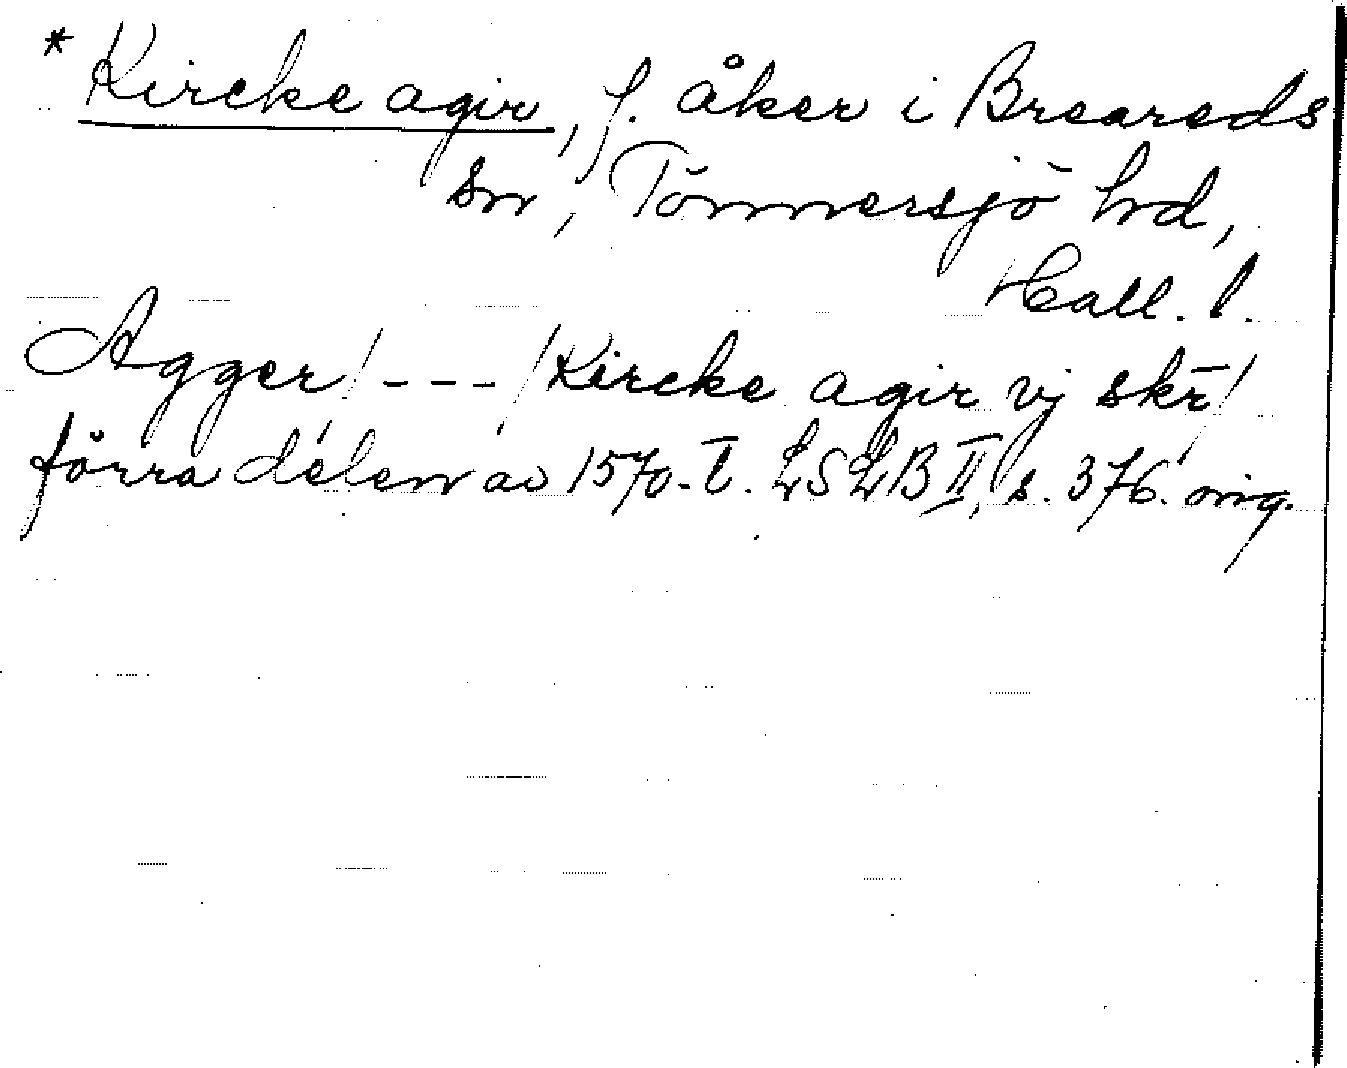 * Kircke agir, f. åker i Breareds
sn, Tönnersjö hd,
Hall. l.
Agger / - - - / Kircke agir vj skr̄ /
förra delen av 1570-t. LSLB II, s. 376. orig.